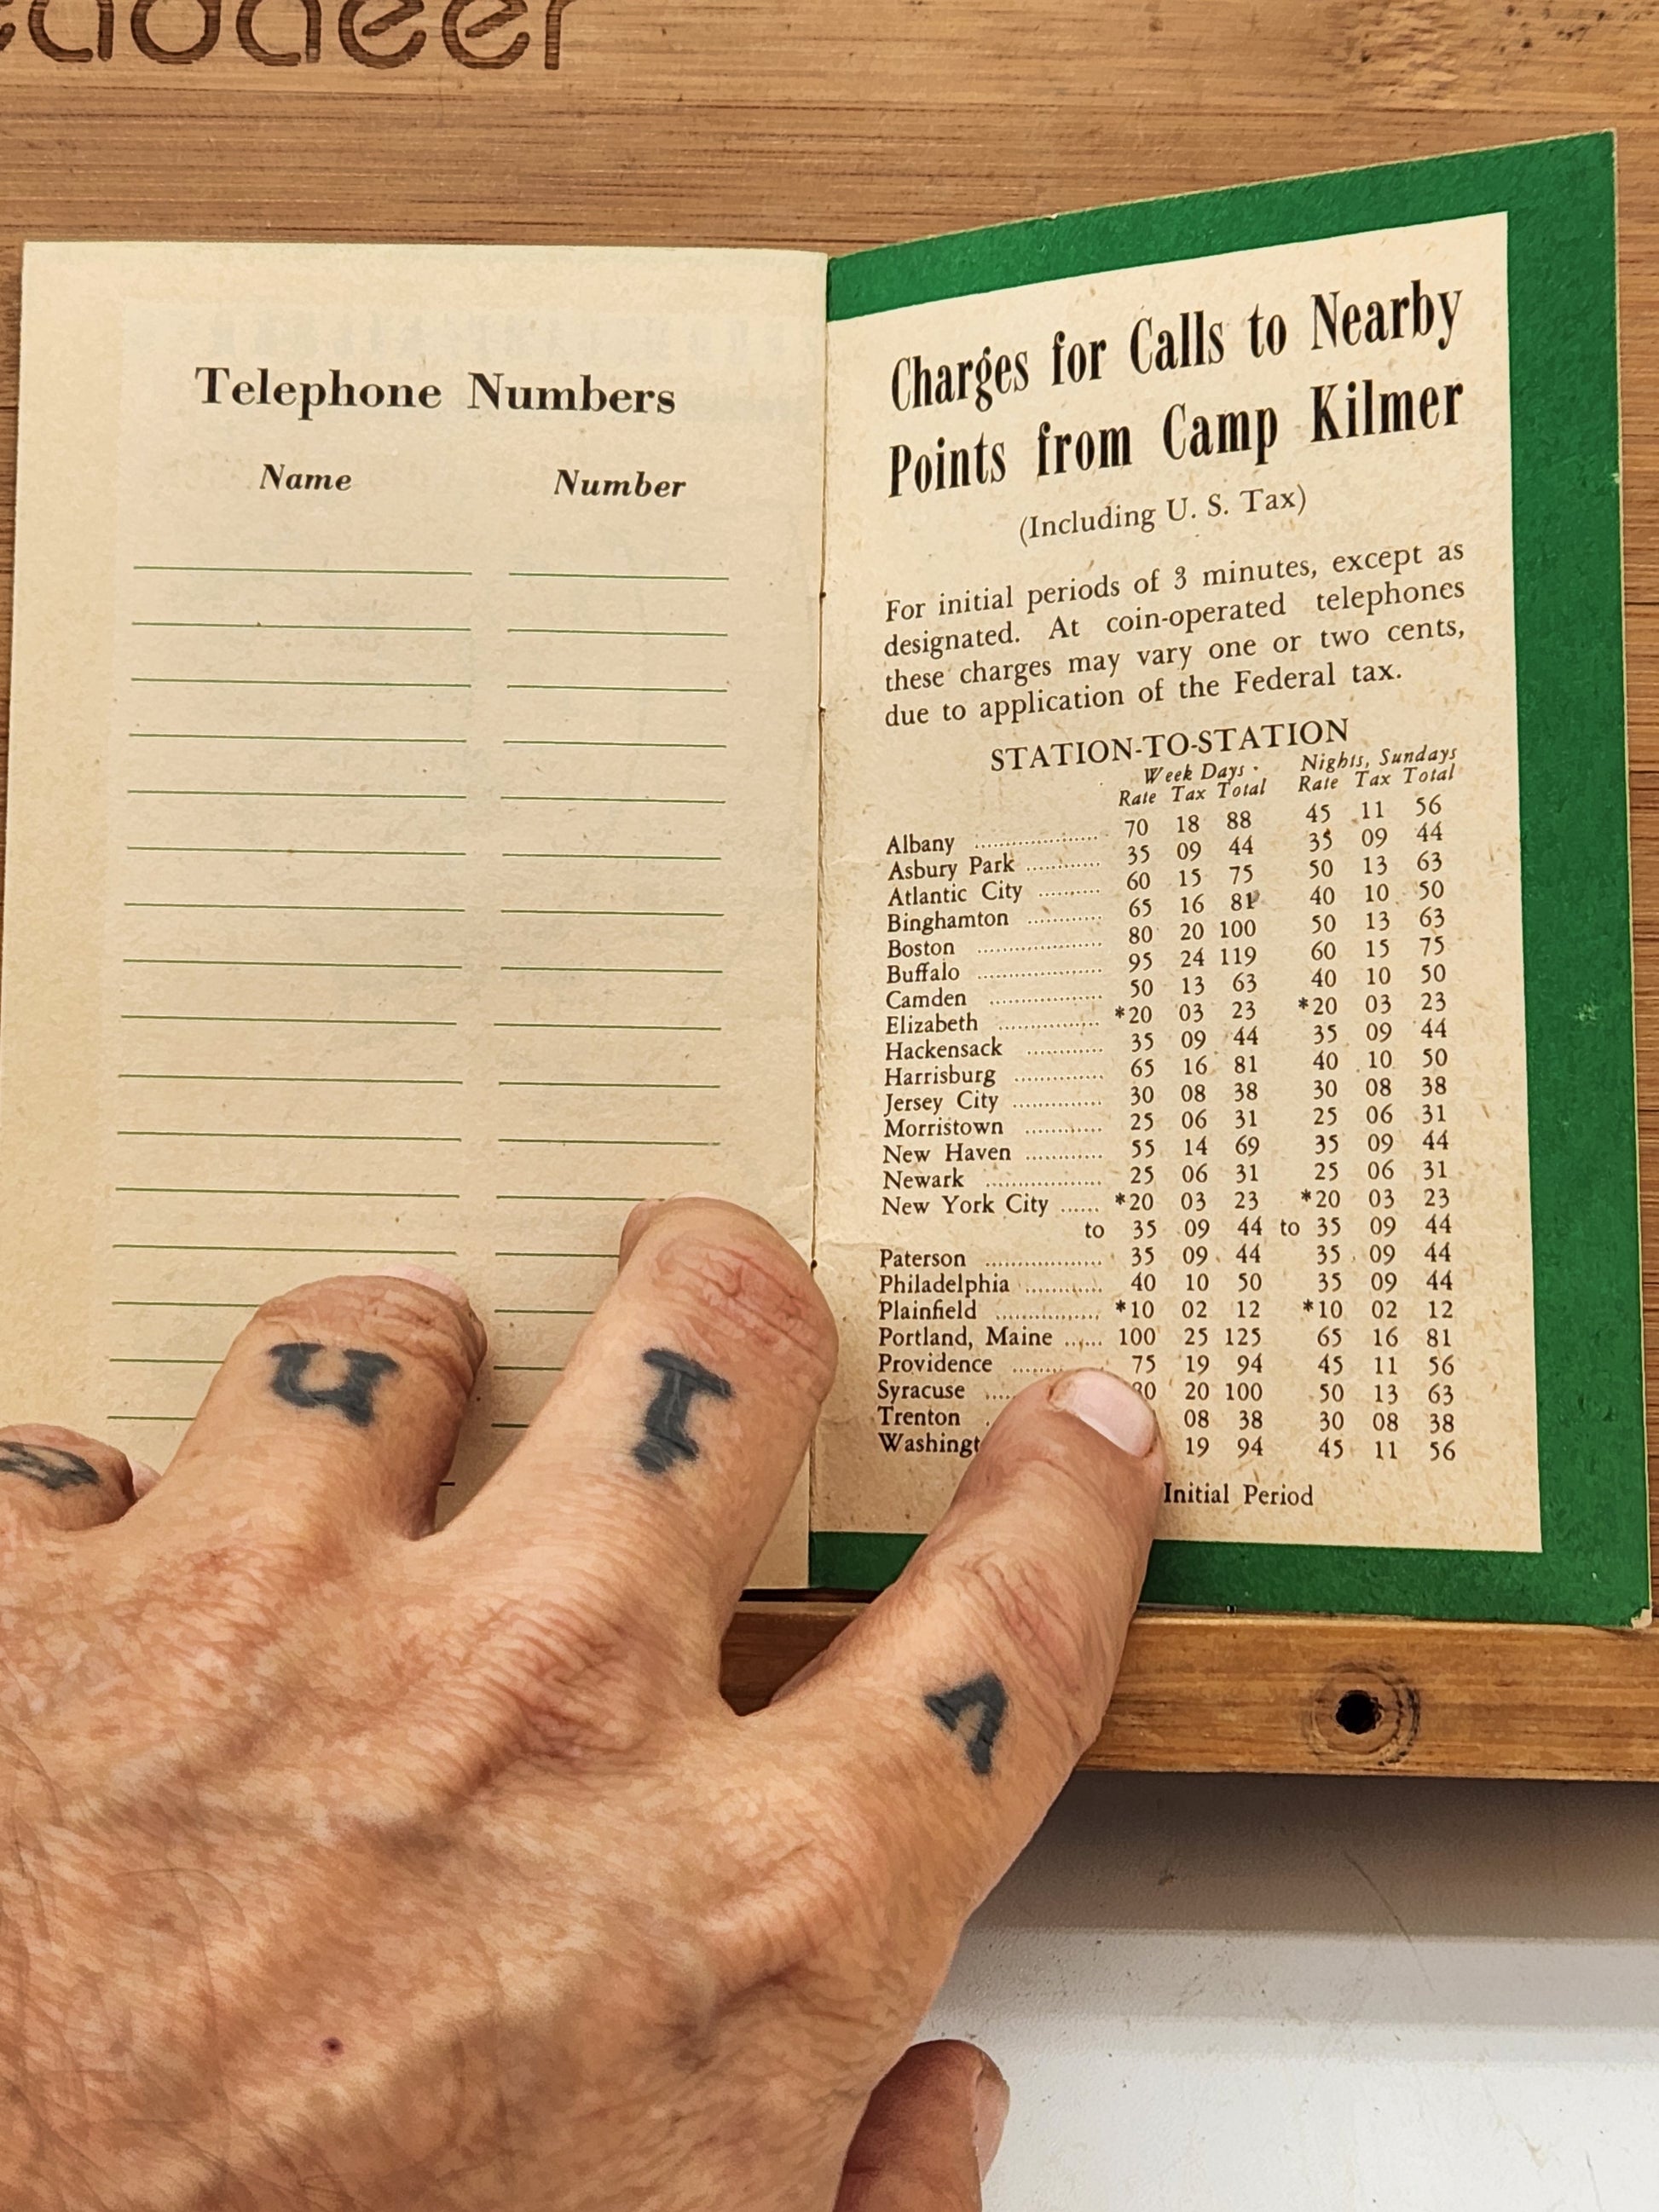 Telephone Numbers
Name Number
Charges for Calls to Nearby
Points from Camp Kilmer
(Including U. S. Tax)
For initial periods of 3 minutes, except as
designated. At coin-operated telephones
these charges may vary one or two cents,
due to application of the Federal tax.
STATION-TO-STATION
Week Days Nights, Sundays
Rate Tax Total Rate Tax Total
Albany 70 18 88 45 11 56
Asbury Park 35 09 44 35 09 44
Atlantic City 60 15 75 50 13 63
Binghamton 65 16 81 40 10 50
Boston 80 20 100 50 13 63
Buffalo 95 24 119 60 15 75
Camden 50 13 63 40 10 50
Elizabeth *20 03 23 *20 03 23
Hackensack 35 09 44 35 09 44
Harrisburg 65 16 81 40 10 50
Jersey City 30 08 38 30 08 38
Morristown 25 06 31 25 06 31
New Haven 55 14 69 35 09 44
Newark 25 06 31 25 06 31
New York City *20 03 23 *20 03 23
to 35 09 44 to 35 09 44
Paterson 35 09 44 35 09 44
Philadelphia 40 10 50 35 09 44
Plainfield *10 02 12 *10 02 12
Portland, Maine 100 25 125 65 16 81
Providence 75 19 94 45 11 56
Syracuse 20 100 50 13 63
Trenton 08 38 30 08 38
Washingt 19 94 45 11 56
Initial Period